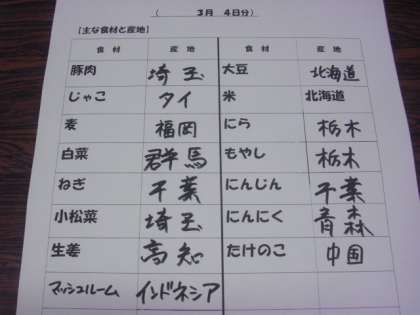 ( 3月 4日分)
【主な食材と産地】
食材 産地 食材 産地
豚肉 埼玉 大豆 北海道
じゃこ タイ 米 北海道
麦 福岡 にら 栃木
白菜 群馬 もやし 栃木
ねぎ 千葉 にんじん 千葉
小松菜 埼玉 にんにく 青森
生姜 高知 たけのこ 中国
マッシュルーム インドネシア